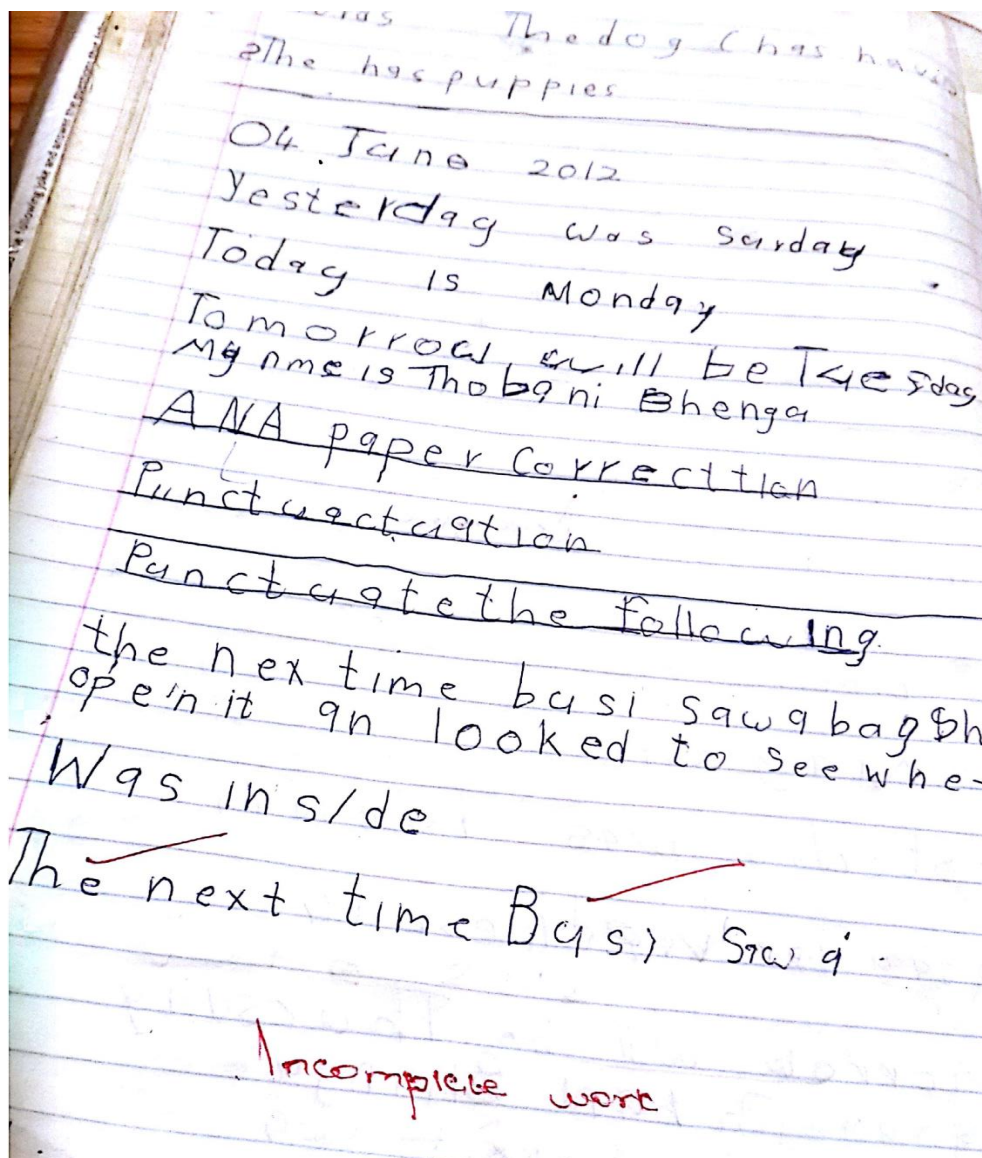 The dog (has havin
2The has puppies
04 June 2012
Yesterday was Sunday
Today is Monday
Tomorrow will be Tuesday
My nme is Thobani Bhenga
ANA paper Correcttion
Punctuactuation
Punctuate the following
the nex time busi saw a bag Sh
open it an looked to see whe-
Was inside
The next time Busi Saw a
Incomplete work